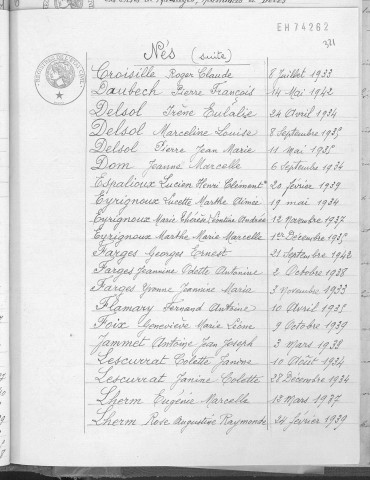 EH 74262
321
Nés (suite)
Croisille Roger Claude 8 Juillet 1933
Daubech Pierre François 14 Mai 1942
Delsol Irène Eulalie 24 Avril 1934
Delsol Marceline Louise 8 Septembre 1935
Delsol Pierre Jean Marie 11 mai 1935
Dom Jeanne Marcelle 6 Septembre 1934
Espalioux Lucien Henri Clément 20 février 1939
Eyrignoux Lucette Marthe Aimée 19 mai 1934
Eyrignoux Marie Thérèse Léontine Andrée 12 novembre 1937
Eyrignoux Marthe Marie Marcelle 1er Décembre 1935
Farges Georges Ernest 21 Septembre 1942
Farges Jeannine Odette Antonine 2 Octobre 1938
Farges Yvonne Jeannine Maria 3 novembre 1933
Flamary Fernand Antoine 10 Avril 1935
Foix Geneviève Marie Léone 9 Octobre 1939
Jammet Antoine Jean Joseph 3 mars 1938
Lescurrat Colette Janine 10 Août 1934
Lescurrat Janine Colette 28 Décembre 1934
Lherm Eugénie Marcelle 13 mars 1937
Lherm Rose Augustine Raymonde 24 février 1939